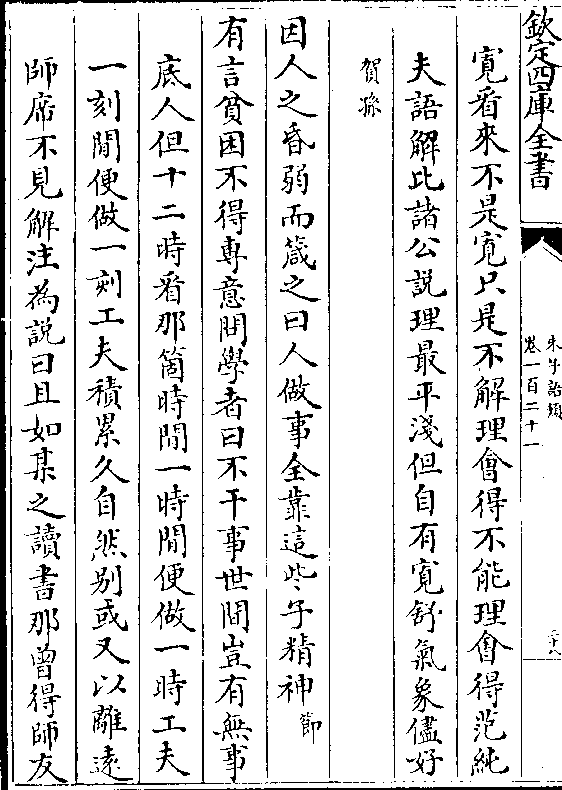 欽定四庫全書
朱子語類
卷一百二十一
二十八
寛看來不是寛只是不解理會得不能理會得范純
夫語解比諸公説理最平淺但自有寛舒氣象儘好
賀孫
因人之昏弱而箴之曰人做事全靠這些子精神節
有言貧困不得專意問學者曰不干事世間豈有無事
底人但十二時看那箇時閒一時閒便做一時工夫
一刻閒便做一刻工夫積累久自然别或又以離遠
師席不見解注為説曰且如某之讀書那曾得師友